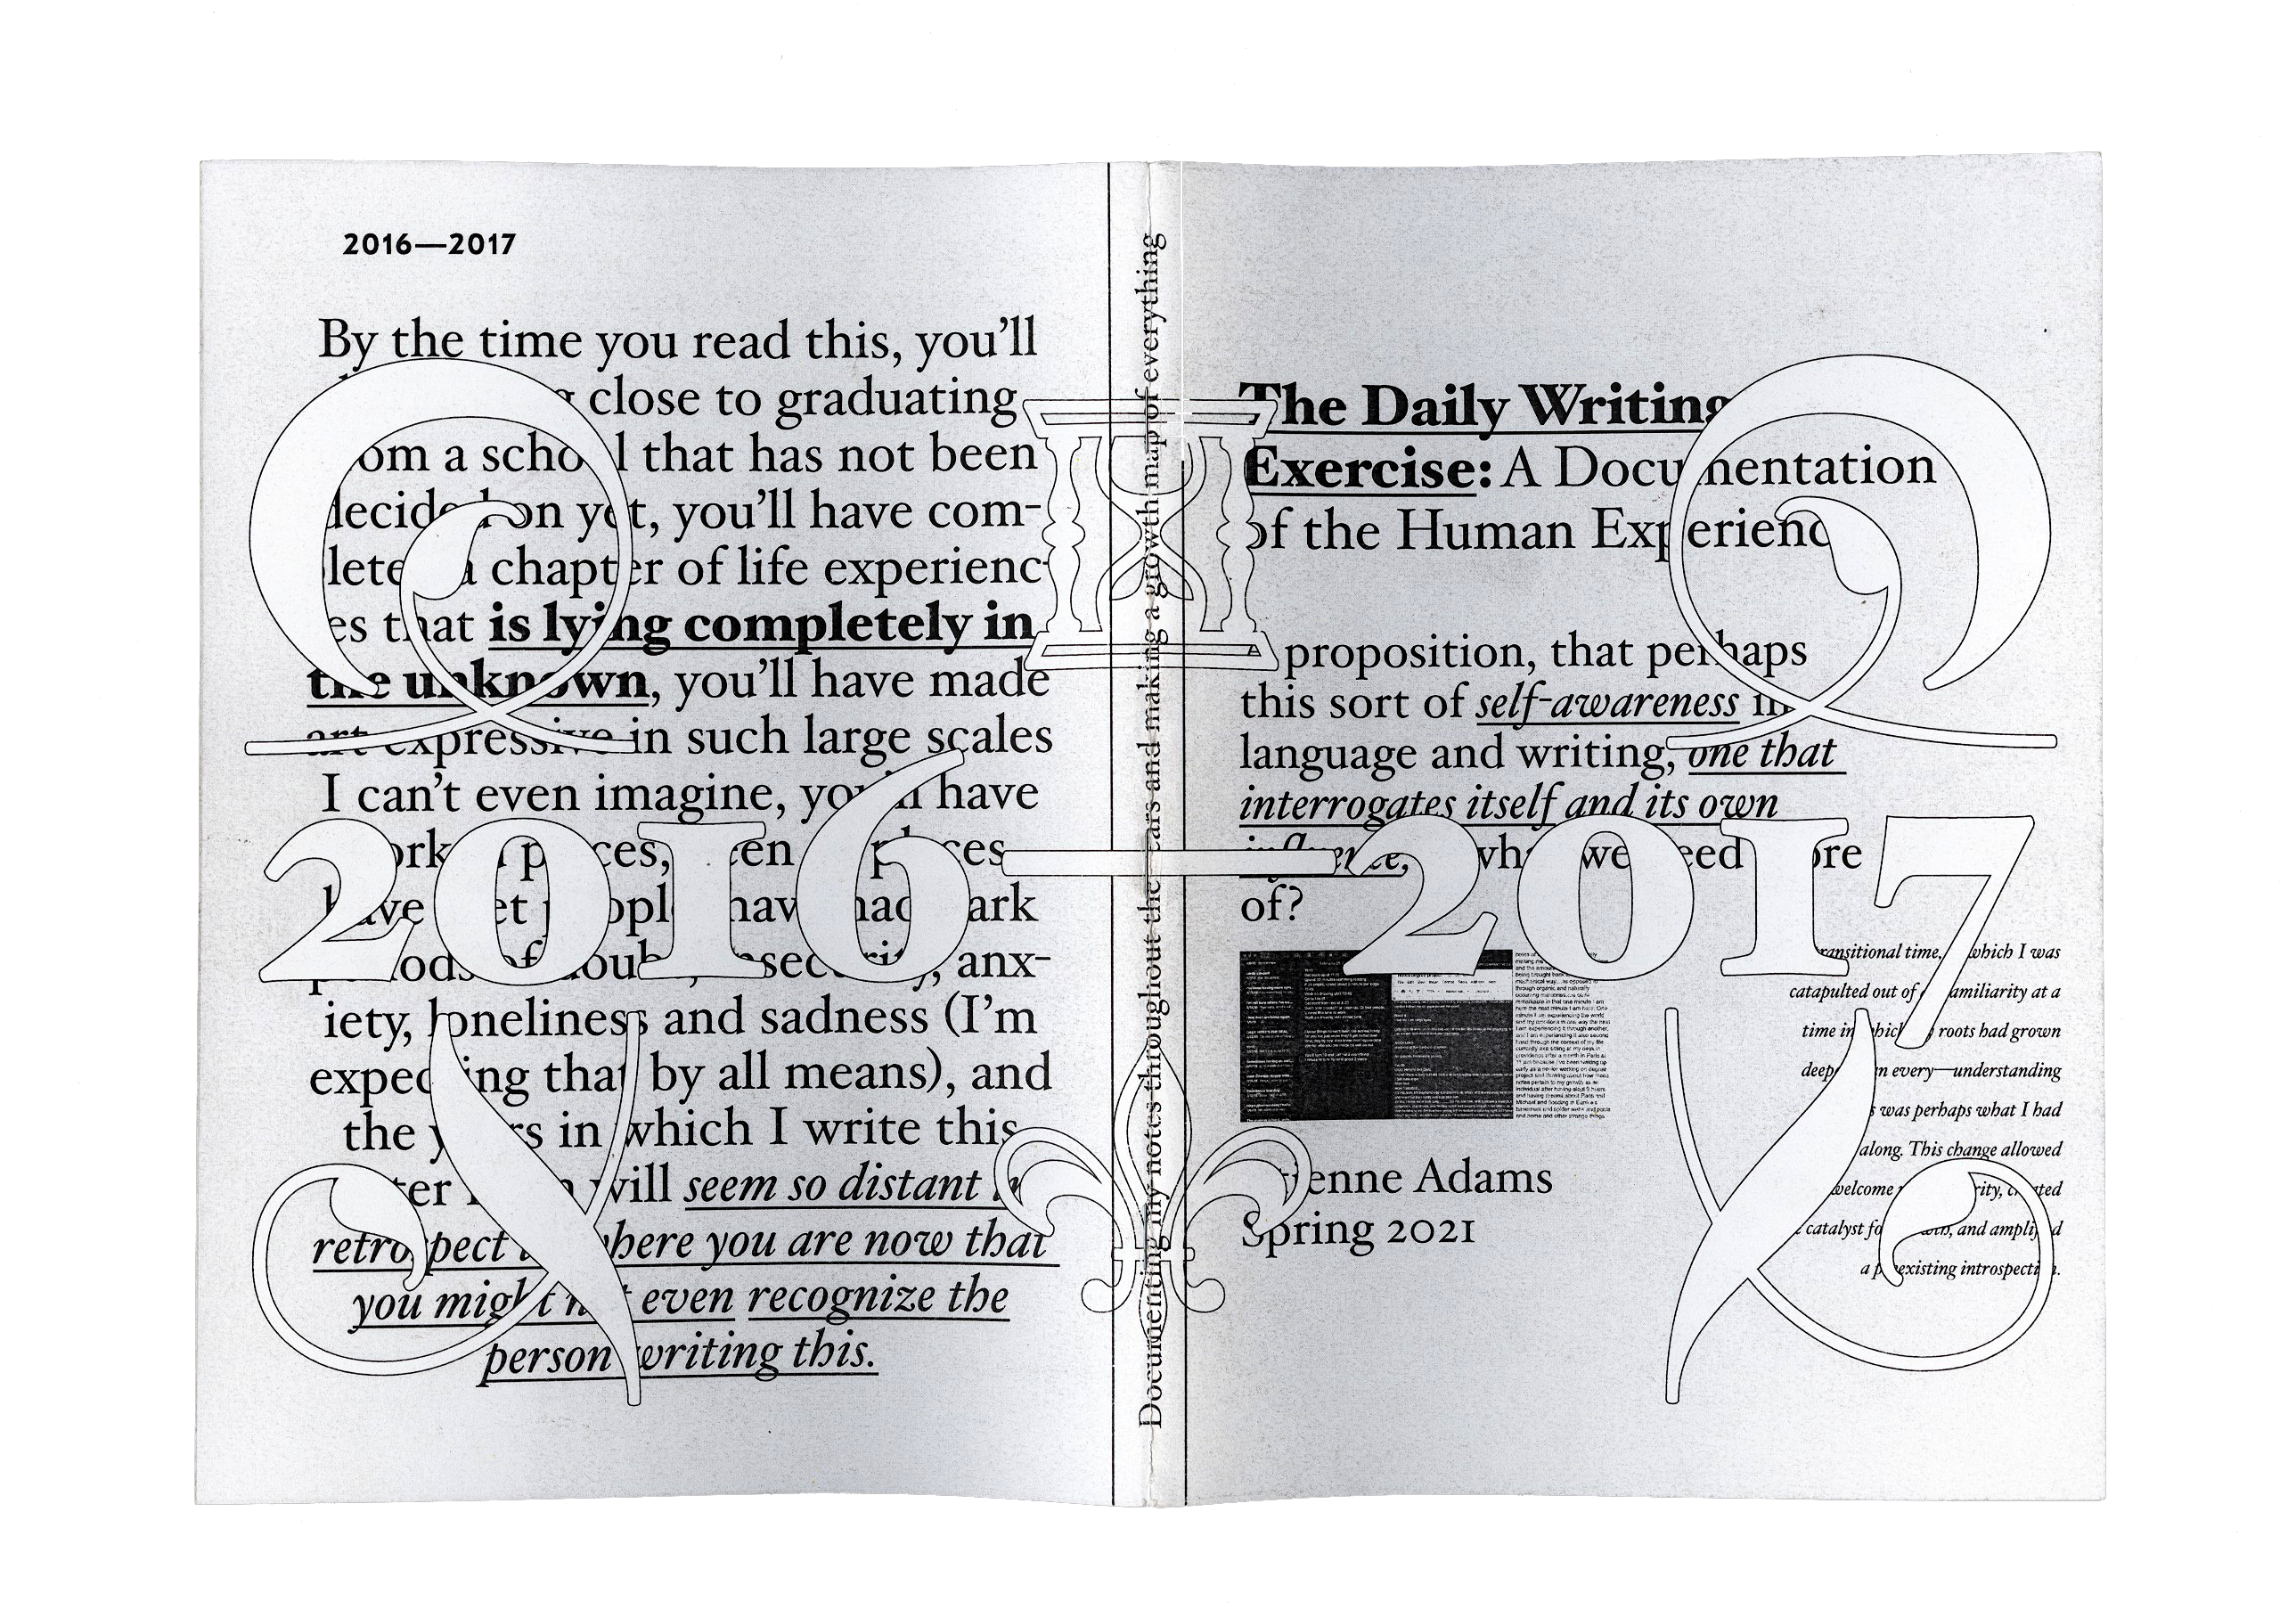 2016—2017
By the time you read this, you’ll
close to graduating
a school that has not been
on yet, you’ll have com-
a chapter of life experienc-
es that is lying completely in
the unknown, you’ll have made
art expressive in such large scales
I can’t even imagine, you’ll have
have
anx-
iety, loneliness and sadness (I’m
expecting that by all means), and
the years in which I write this
will seem so distant in
retrospect where you are now that
you might not even recognize the
person writing this.
Documenting my notes throughout the years and making a growth map of everything
The Daily Writing
Exercise: A Documentation
of the Human Experience
proposition, that perhaps
this sort of self-awareness in
language and writing, one that
interrogates itself and its own
influence, we need more
of?
Adams
Spring 2021
transitional time, which I was
catapulted out of familiarity at a
time in which roots had grown
every—understanding
was perhaps what I had
along. This change allowed
welcome
catalyst and amplified
a preexisting introspection.
2016—2017